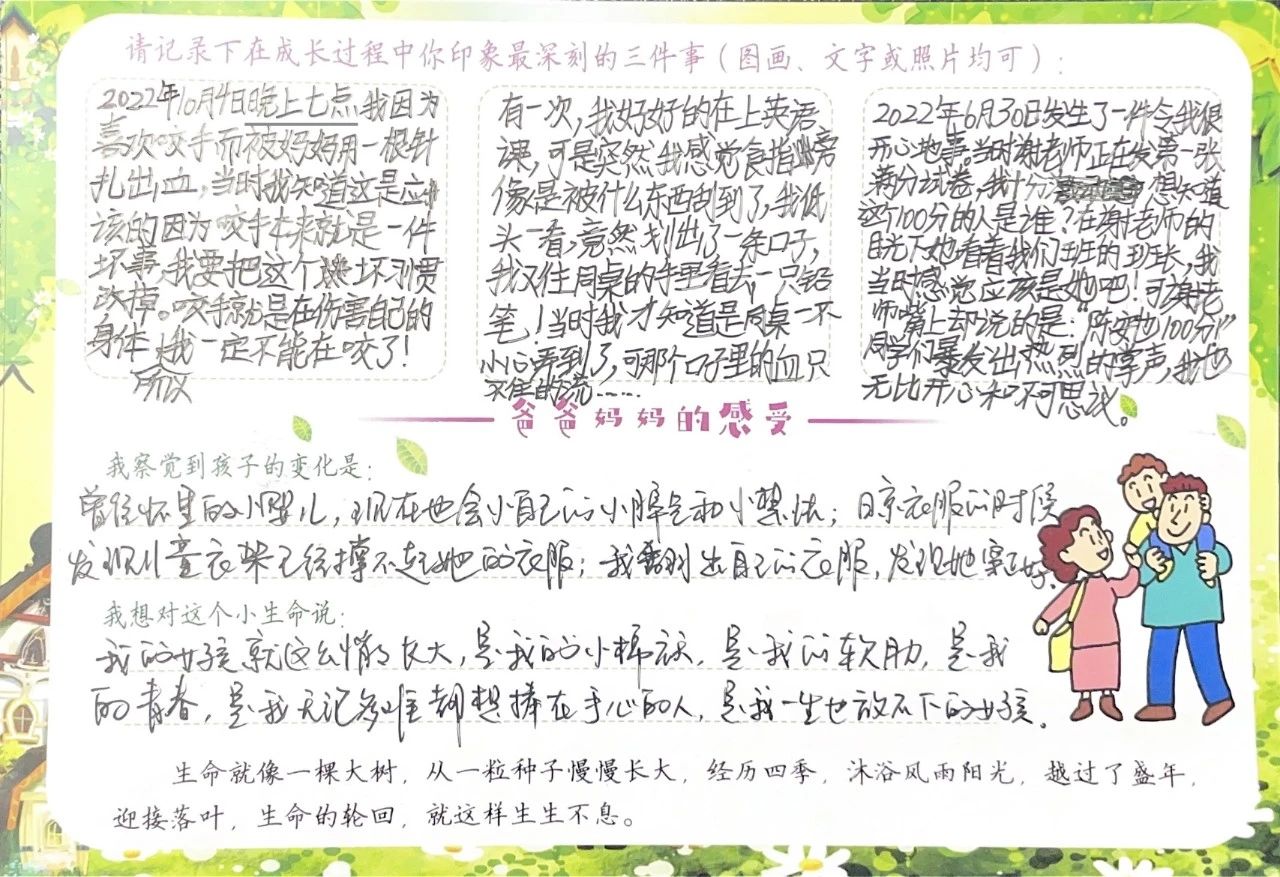 请记录下在成长过程中你印象最深刻的三件事（图画、文字或照片均可）:
2022年10月4日晚上七点我因为
喜欢咬手而被妈妈用一根针
扎出血，当时我知道这是应
该的因为咬手本来就是一件
坏事,我要把这个坏习惯
改掉。咬手就是在伤害自己的
身体,所以我一定不能在咬了！
有一次,我好好的在上英语
课,可是突然我感觉食指旁
像是被什么东西刮到了,我低
头一看,竟然划出了一条口子,
我又往同桌的手里看去,一只铅
笔！当时我才知道是同桌一不
小心弄到了,可那个口子里的血只
不住的流……
2022年6月30日发生了一件令我很
开心地事。当时谢老师正在发第一张
满分试卷,我十分想知道
这个100分的人是谁？在谢老师的
目光下她看着我们班的班长,我
当时感觉应该是她吧！可谢老
师嘴上却说的是:“陈安也100分!”
同学们暴发出热烈的掌声,我也
无比开心和不可思议。
爸爸妈妈的感受
我察觉到孩子的变化是:
曾经怀里的小婴儿,现在也会小自己的小脾气和小想法；晾衣服的时候
发现儿童衣架已经撑不起她的衣服；我翻出自己的衣服,发现她穿正好.
我想对这个小生命说:
我的女孩就这么悄悄长大,是我的小棉袄,是我的软肋,是我
的青春,是我无论多难都想捧在手心的人,是我一生也放不下的女孩.
生命就像一棵大树，从一粒种子慢慢长大，经历四季，沐浴风雨阳光，越过了盛年，
迎接落叶，生命的轮回，就这样生生不息。